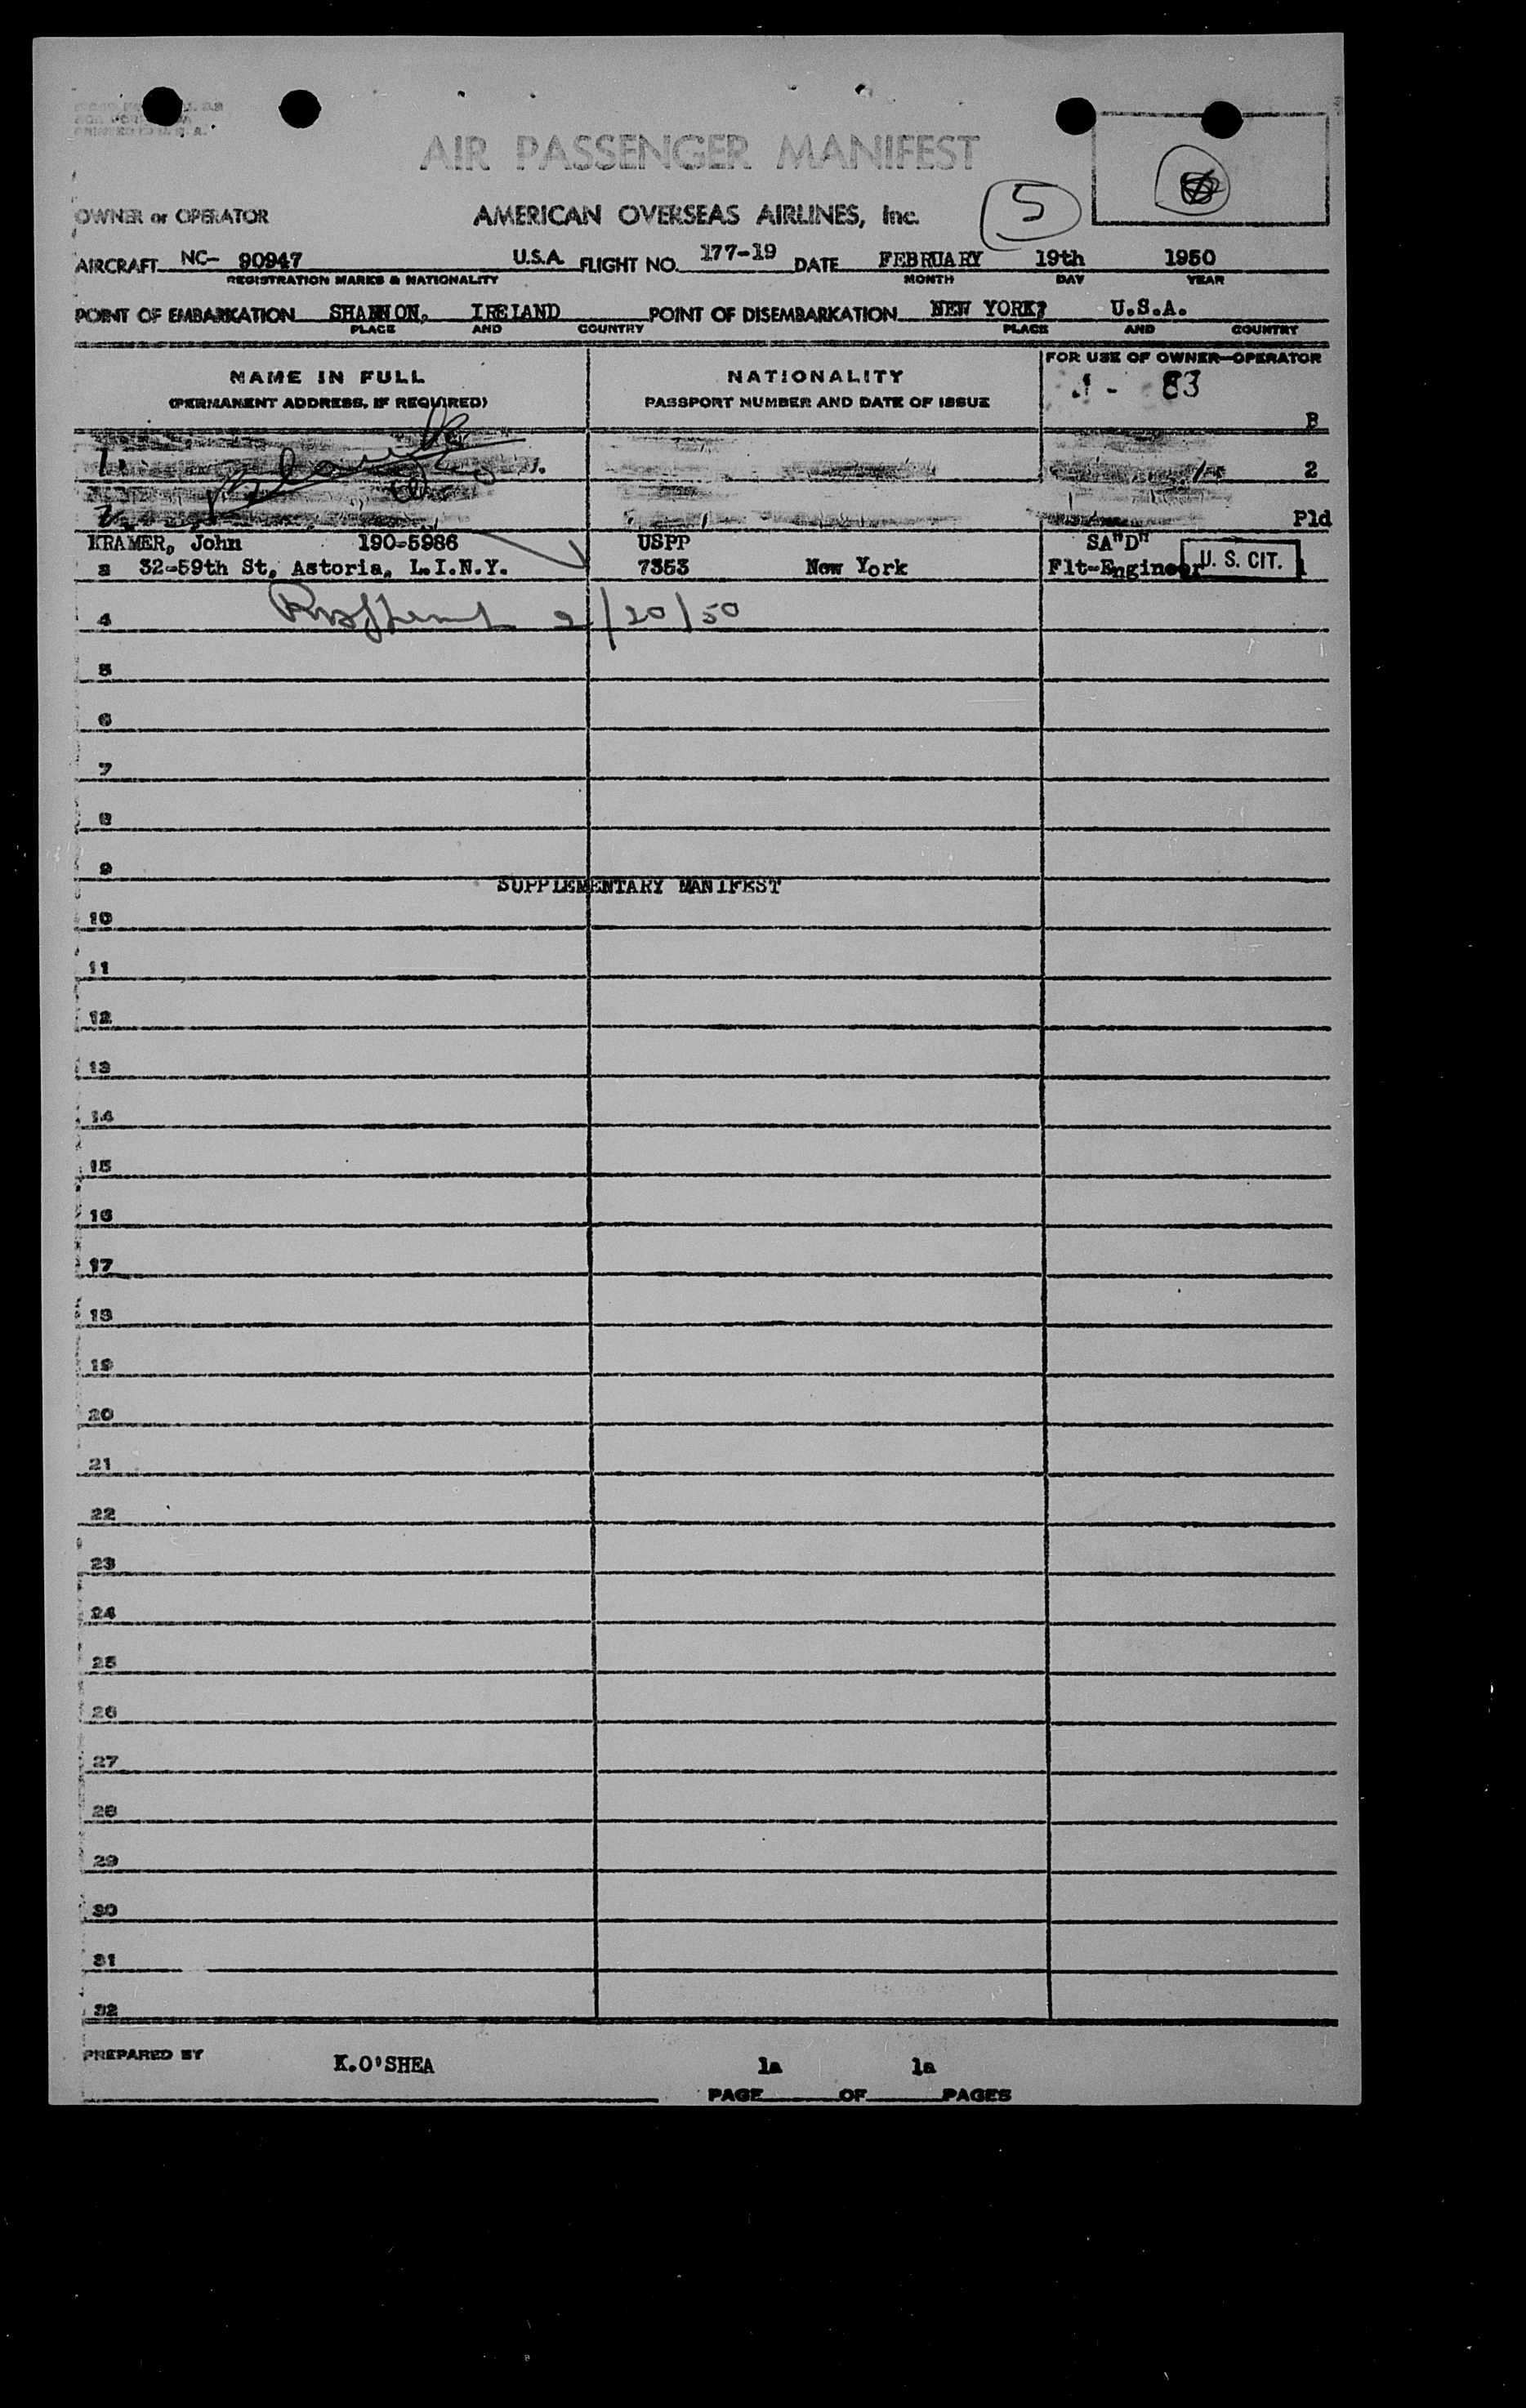 AIR PASSENGER MANIFEST
5
OWNER or OPERATOR AMERICAN OVERSEAS AIRLINES, Inc.
AIRCRAFT NC- 90947 U.S.A. FLIGHT NO. 177-19 DATE FEBRUARY 19th 1950
REGISTRATION MARKS & NATIONALITY MONTH DAY YEAR
POINT OF EMBARKATION SHANNON, IRELAND POINT OF DISEMBARKATION NEW YORK? U.S.A.
PLACE AND COUNTRY PLACE AND COUNTRY
NAME IN FULL NATIONALITY FOR USE OF OWNER—OPERATOR
(PERMANENT ADDRESS, IF REQUIRED) PASSPORT NUMBER AND DATE OF ISSUE 83
B
1 2
2 Pld
KRAMER, John 190-5986 USPP SA"D"
3 32-59th St, Astoria, L.I.N.Y. 7353 New York Flt-Engineer U. S. CIT. 1
4 2/20/50
5
6
7
8
9
SUPPLEMENTARY MANIFEST
10
11
12
13
14
15
16
17
18
19
20
21
22
23
24
25
26
27
28
29
30
31
32
PREPARED BY K.O'SHEA 1a 1a
PAGE OF PAGES